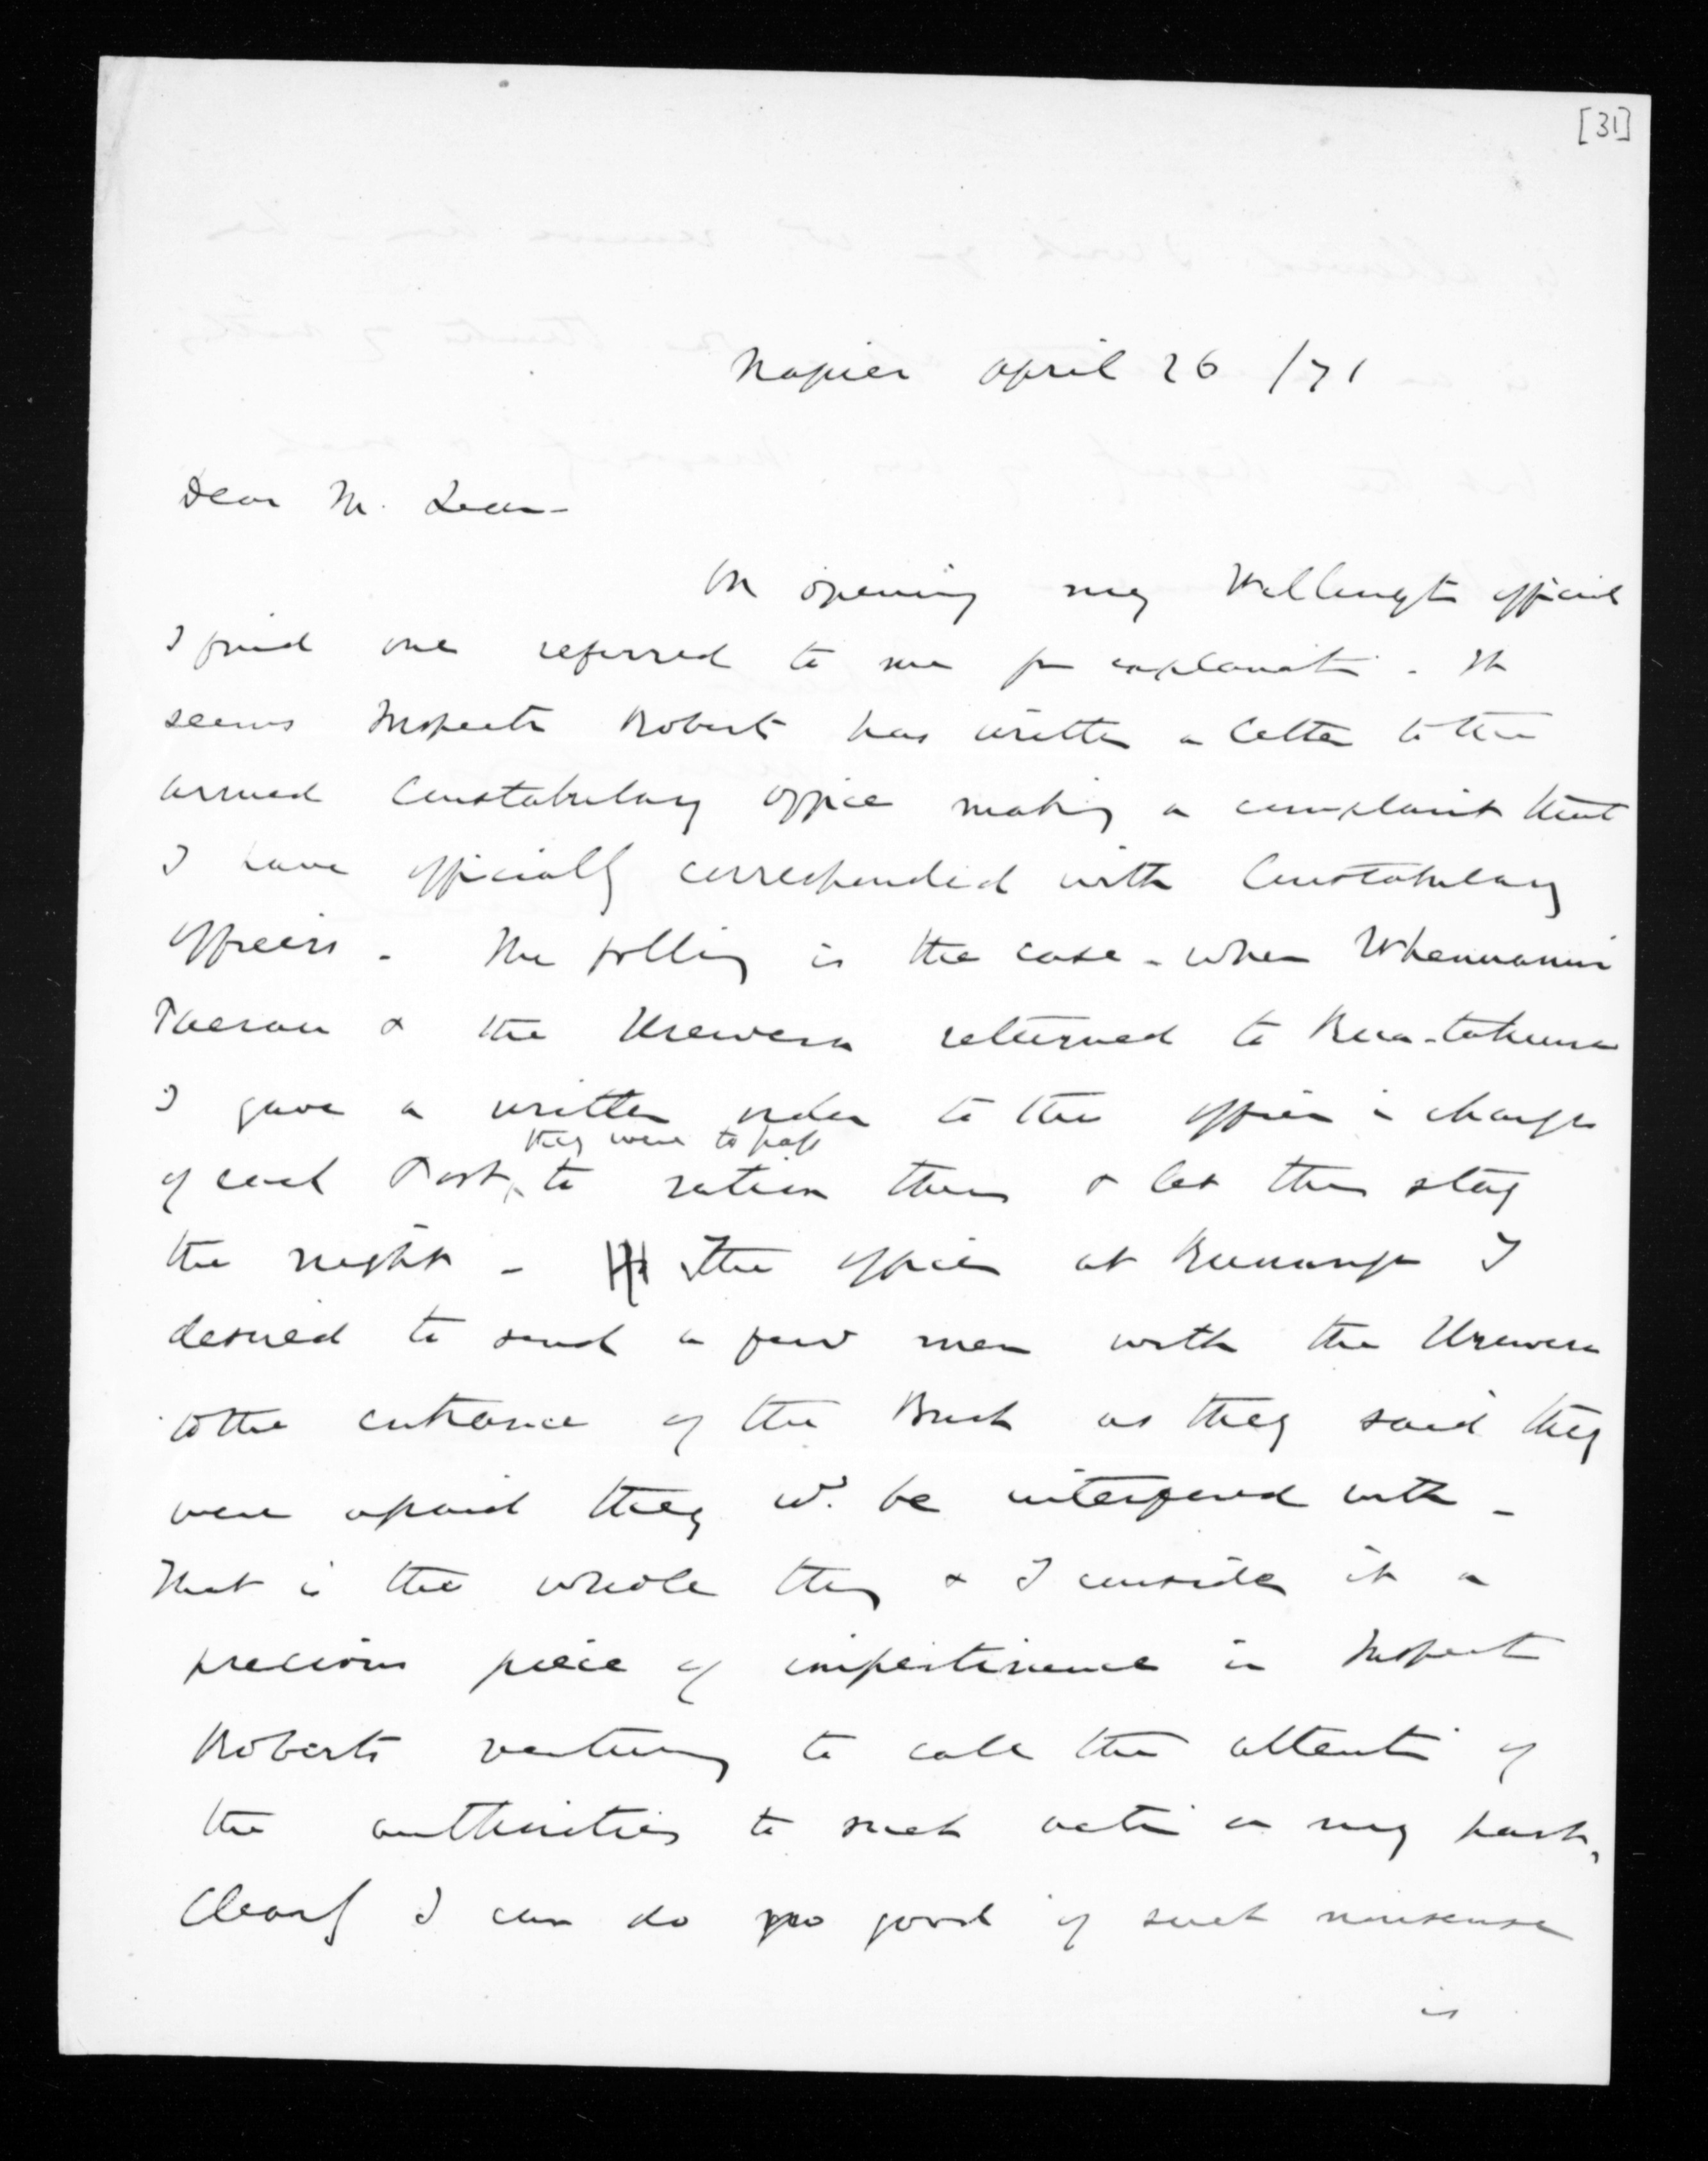 [31]
Napier April 26 /71
Dear M. Lean -
On opening my Wellingt official
I find one referred to me for explanati . It
seems Inspectr Roberts has written a letter to the
armed Constabulary office making a complaint that
I have officially corresponded with Constabulary
officers . The follg is the case - when Whenuanui
Paerau & the Urewera returned to Rua-tahuna
I gave a written order to the officer in charge
they were to pass
of each Post, to ration them & let them stay
the night - The officer at Runanga I
desired to send a few men with the Urewera
to the entrance of the Bush as they said they
were afraid they wd. be interfered with -
That is the whole thing & I consider it a
precious piece of impertinence in Inspect
Roberts venturing to call the attenti of
the authorities to such acti on my part,
Clearly I can do no good if such nonsense
is